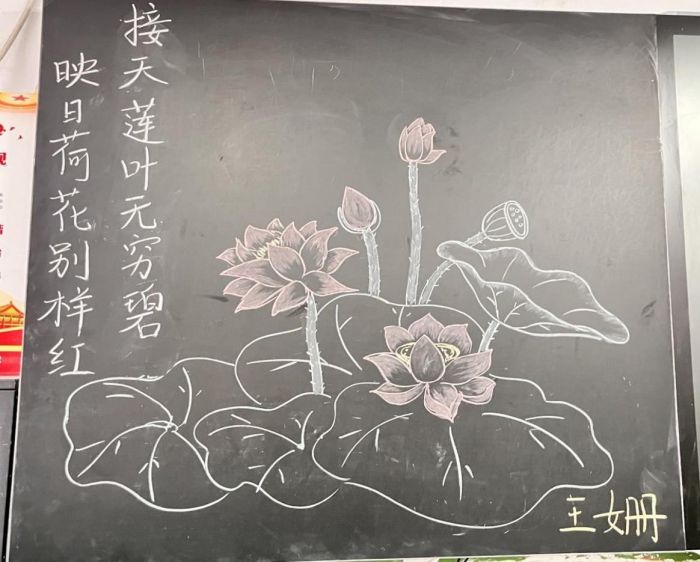 接天莲叶无穷碧
映日荷花别样红
王姗